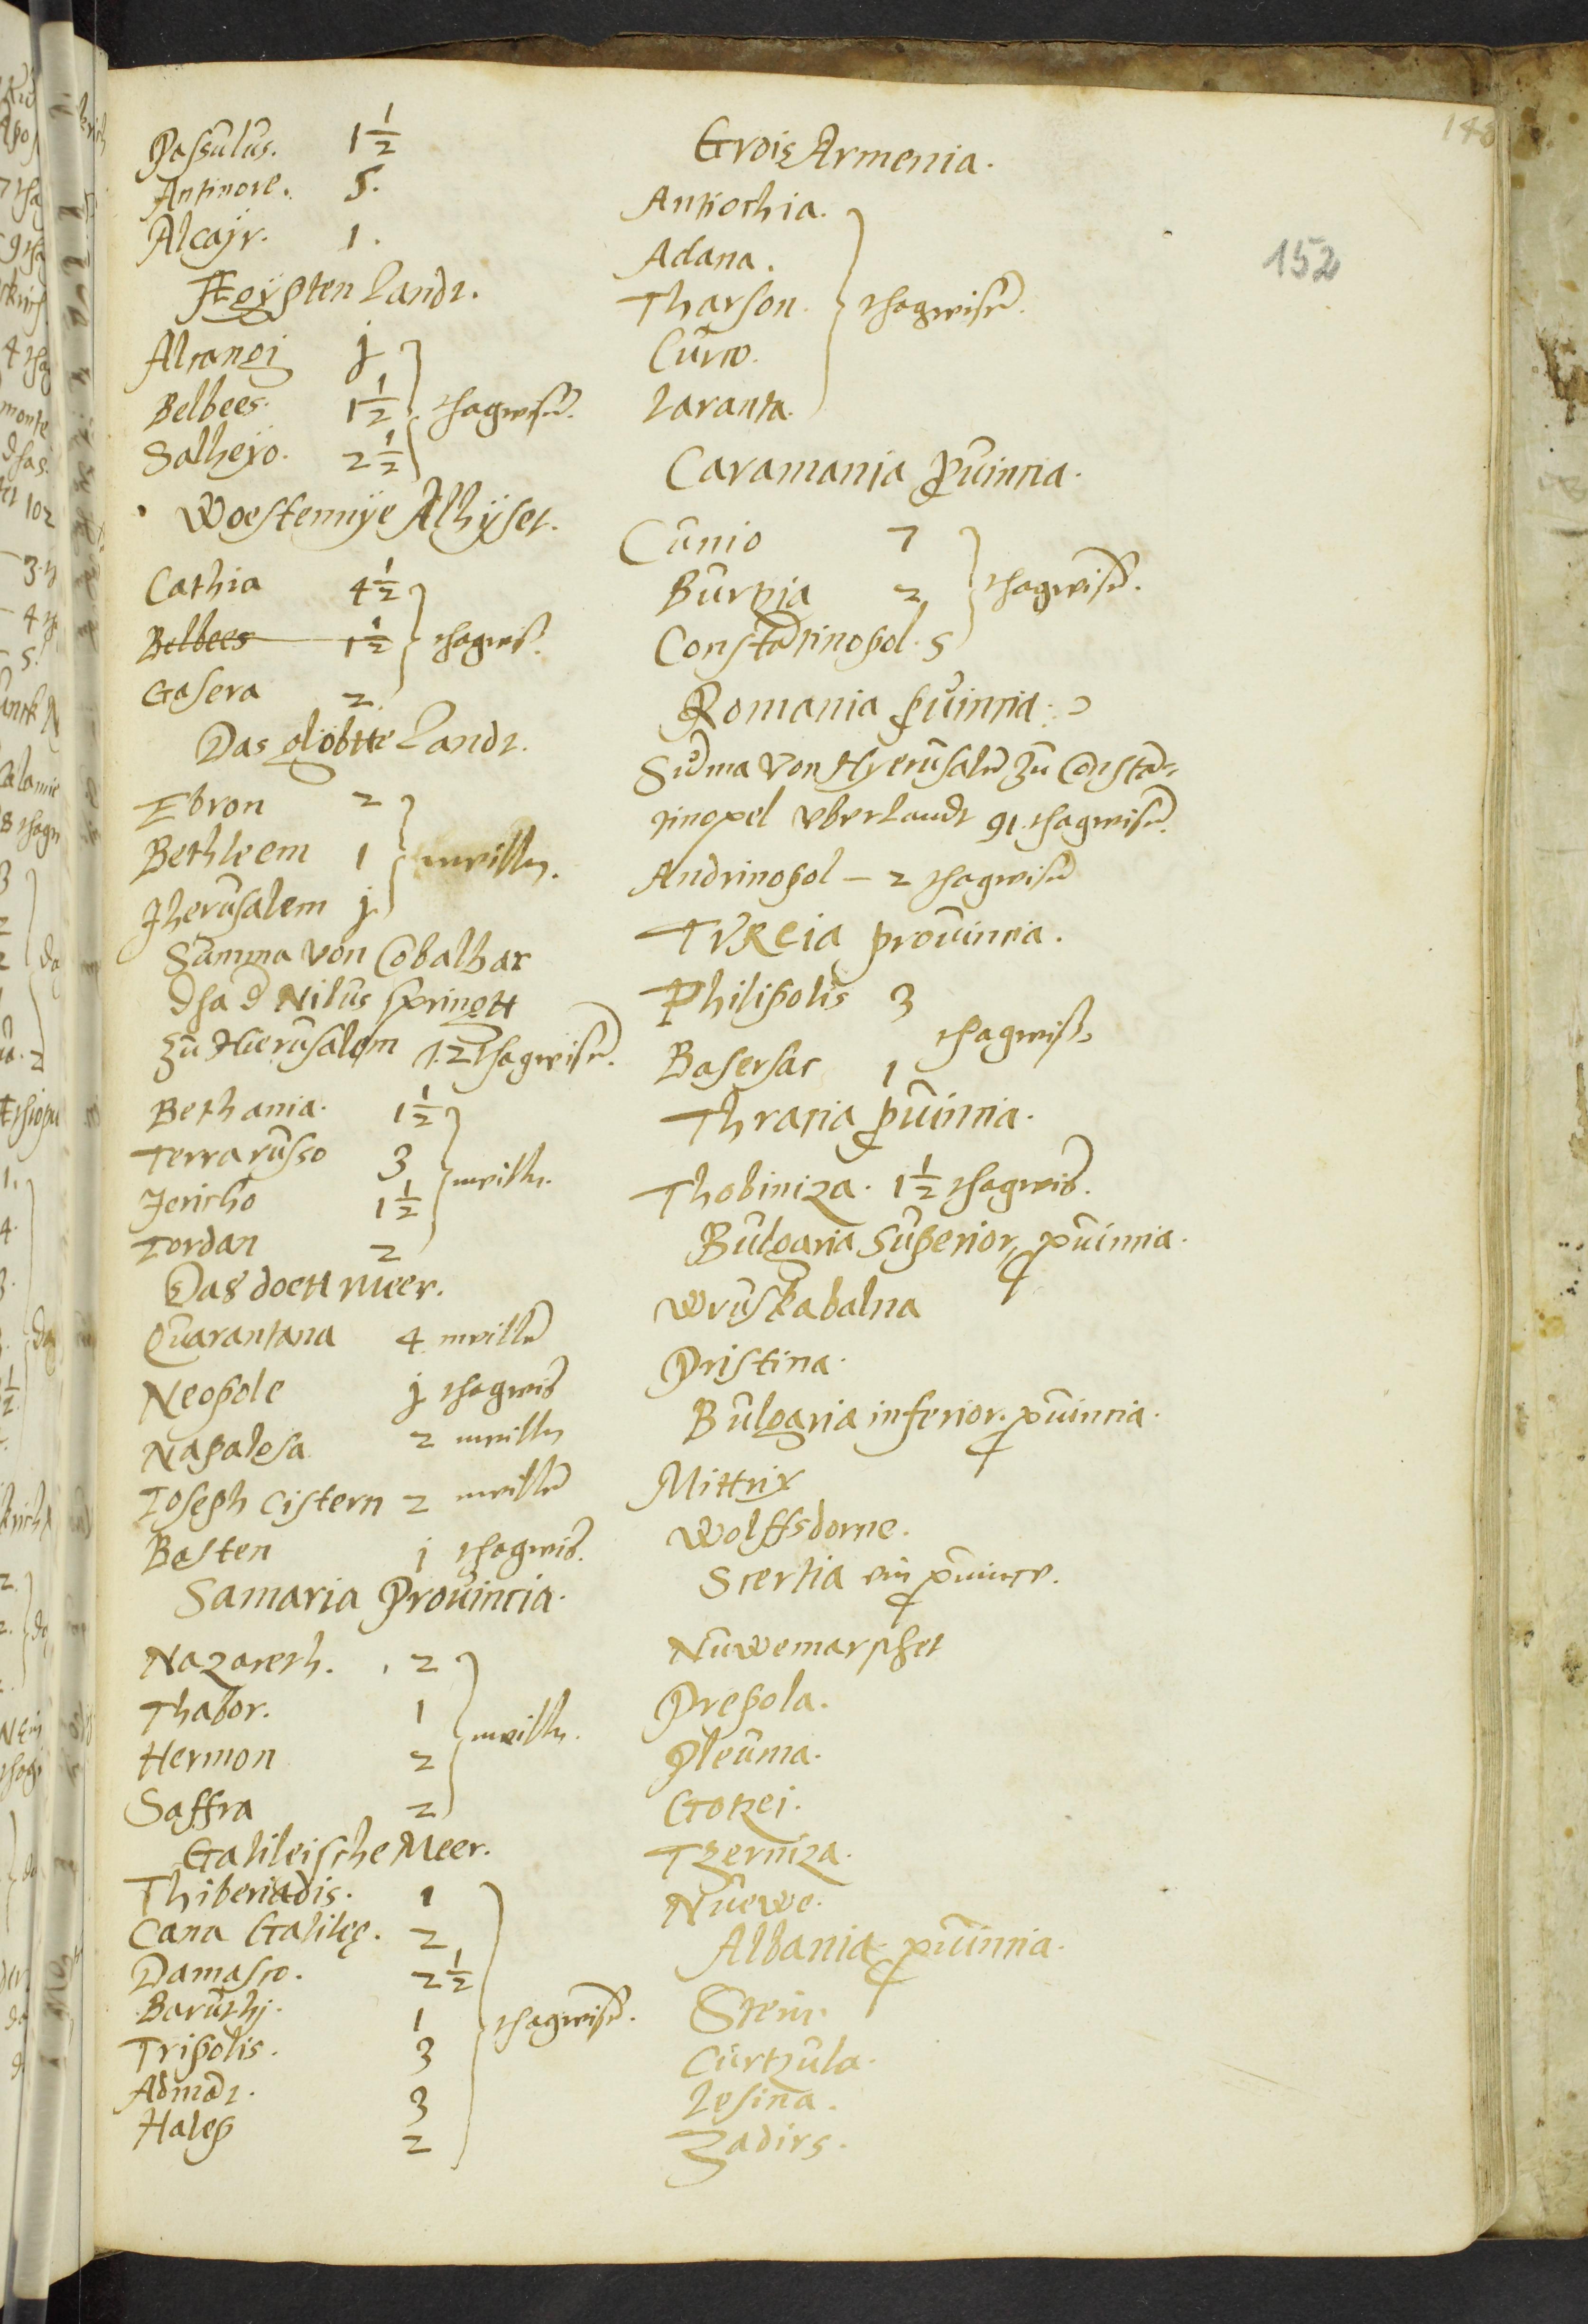 148
152
Passulus. 1 1/2
Antinore. 5.
Alcayr. 1.
Ægypten Landt.
Alcangi j
Belbees. 1 1/2 thagreisen.
Salheyo. 2 1/2
Woestennye Alhyset.
Cathia 4 1/2
Belbees 1 1/2 thagreis.
Gasera 2.
Das globtte Landt.
Ebron 2
Bethleem 1 meillen.
Jherusalem j
Summa von Cobalhar
dha d Nilus springtt
zu Hierusalem thagreisen.
Bethania. 1 1/2
Terra russo 3 meillen.
Jericho 1 1/2
Jordan 2
Das doett meer.
Quarantana 4 meillen
Neopole j thagreis
Napalosa 2 meillen
Joseph cistern 2 meillen
Basten j thagreis.
Samaria Prouincia.
Nazareth. 2
Thabor. 1
Hermon 2 meillen.
Saffra 2
Galileische Meer.
Thiberiadis. 1
Cana Galileę. 2
Damasco. 2 1/2
Baruthj. 1 thagreisen.
Tripolis. 3
Admant. 3
Halep 2
Grois Armenia.
Antiochia.
Adana.
Tharson. thagreisen.
Curco.
Laranta.
Caramania puincia.
Cunio 7
Burtzia 2 thagreisen.
Constantinopol. 5
Romania puincia.
Suma von Hyerusalem zu Constan-
tinopel vberlandt 91 thagreisen.
Andrinopol - 2 thagreisen
TVRCIA prouincia.
Philipolis 3
thagreisen
Basersac 1
Thracia puincia.
Thobiniza. 1 1/2 thagreis.
Bulgaria Superior, puincia.
Wruskabalna
Pristina.
Bulgaria inferior. puincia.
Mittrix
Wolffsdorne.
Scertia ein puince.
Nuwemarckhet
Prepola.
Pleuma.
Gotzei.
Tzerniza.
Nuewe.
Albania. puincia.
Curtzula.
Lesina.
Zadirs.